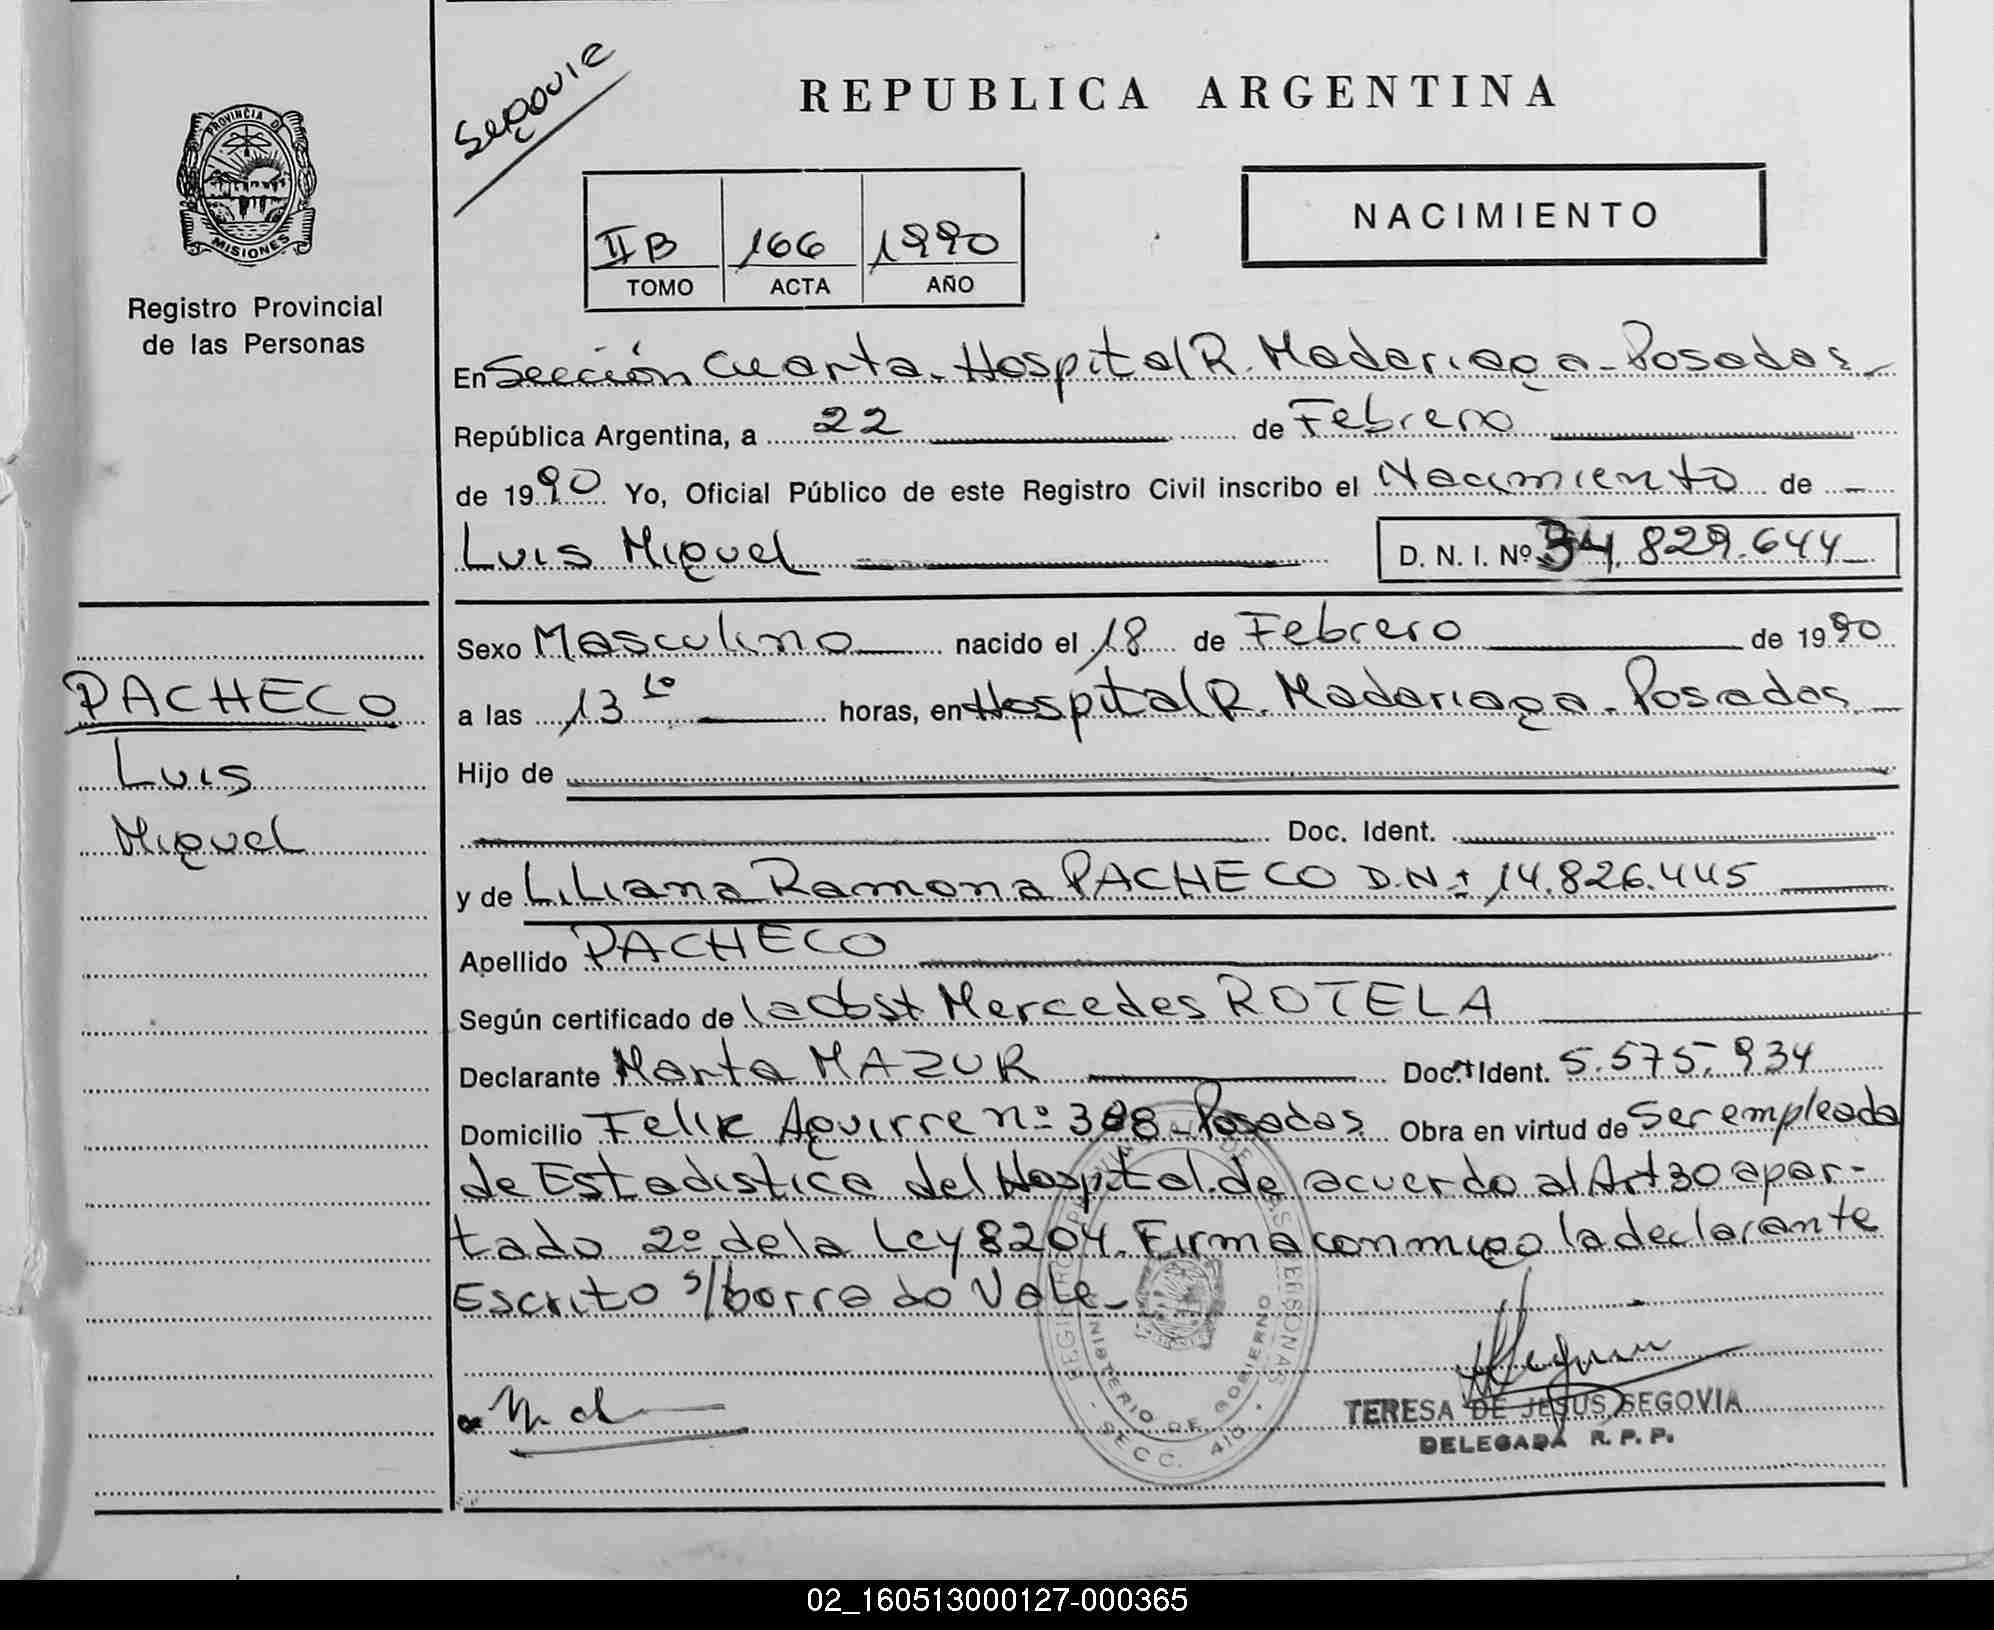 Segovia
REPUBLICA ARGENTINA
PROVINCIA DE
MISIONES
Registro Provincial
de las Personas
II B 166 1990
TOMO ACTA AÑO
NACIMIENTO
En Sección Cuarta. Hospital R. Madariaga - Posadas
República Argentina, a 22 de Febrero
de 1990 Yo, Oficial Público de este Registro Civil inscribo el Nacimiento de
Luis Miguel D. N. I. Nº 34.829.644
Sexo Masculino nacido el 18 de Febrero de 1990
PACHECO
Luis
Miguel
a las 13 horas, en Hospital R. Madariaga - Posadas
Hijo de
Doc. Ident.
y de Liliana Ramona PACHECO D.N.I 14.826.445
Apellido PACHECO
Según certificado de la Obst Mercedes ROTELA
Declarante Marta MAZUR Doc. Ident. 5.575.934
Domicilio Felix Aguirre nº 388 - Posadas Obra en virtud de Ser empleada
de Estadistica del Hospital. de acuerdo al Art 30 apar-
tado 2º de la Ley 8204. Firma conmigo la declarante
Escrito s/borrado Vale -
TERESA DE JESUS SEGOVIA
DELEGADA R. P. P.
MINISTERIO DE GOBIERNO
SECC. 4
02_160513000127-000365